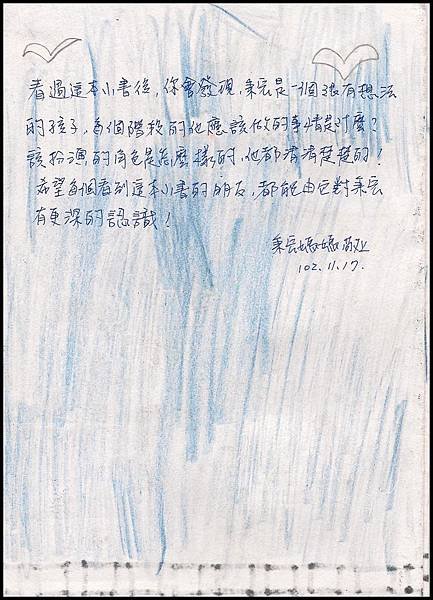 看過這本小書後，你會發現，秉宏是一個很有想法
的孩子，每個階段的他應該做的事情是什麼？
該扮演的角色是怎麼樣的，他都清清楚楚的！
希望每個看到這本小書的朋友，都能由它對秉宏
有更深的認識！
秉宏媽媽敬上
102.11.17.